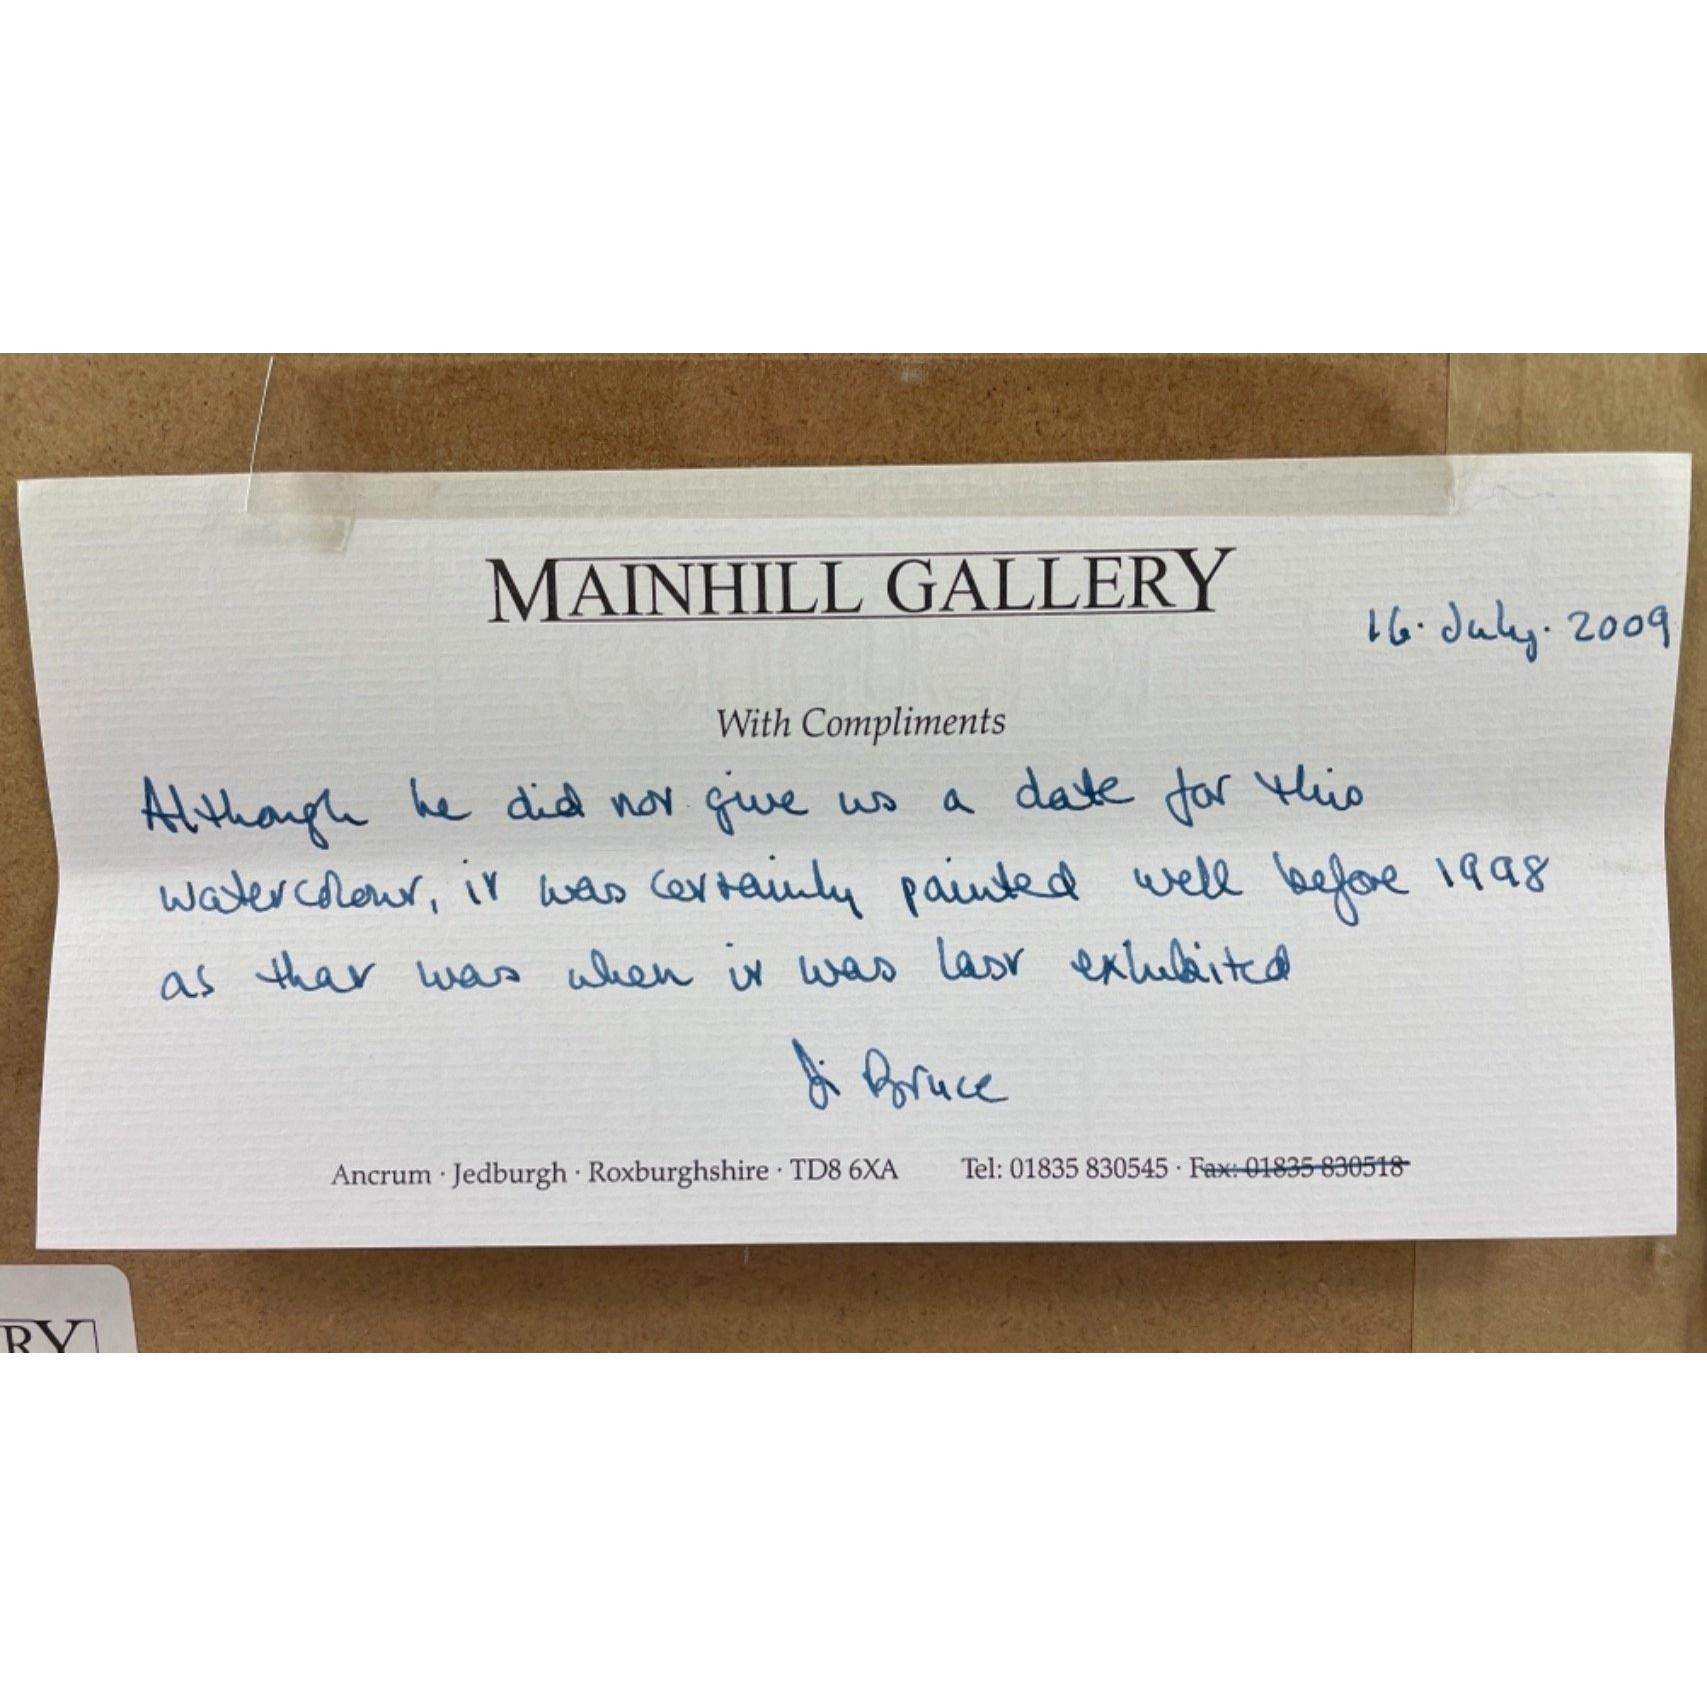 MAINHILL GALLERY
16. July. 2009
With Compliments
Although he did not give us a date for this
watercolour, it was certainly painted well before 1998
as that was when it was last exhibited
Di Bruce
Ancrum · Jedburgh · Roxburghshire · TD8 6XA Tel: 01835 830545 · Fax: 01835 830518
RY